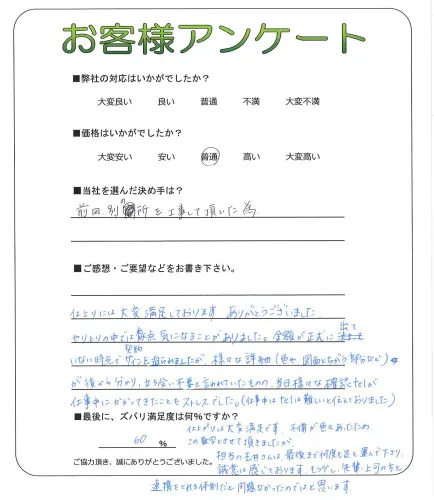 お客様アンケート
■弊社の対応はいかがでしたか?
大変良い 良い 普通 不満 大変不満
■価格はいかがでしたか?
大変安い 安い 普通 高い 大変高い
■当社を選んだ決め手は?
前回、別の所を工事して頂いた為
■ご感想・ご要望などをお書き下さい。
仕上りには大変満足しております ありがとうございました
やりとりの中では数点気になることがありました。金額が正式に出て
いない時点で契約サインを迫られましたが、様々な詳細(色や図面とちがう部分など)
が後から分かり、立ち会い不要と言われていたものの、当日様々な確認telが
仕事中にかかってきたこともストレスでした。(仕事中はtelは難しいと伝えておりました)
■最後に、ズバリ満足度は何%ですか?
60 %
仕上がりは大変満足です。不備が色々あったため、
この数字とさせて頂きましたが、
担当の玉井さんは、最後まで何度も足を運んで下さり、
ご協力頂き、誠にありがとうございました。
誠意は感じております。もう少し、先輩・上司の方と
連携をとれる体制だと問題なかったのではと思います。